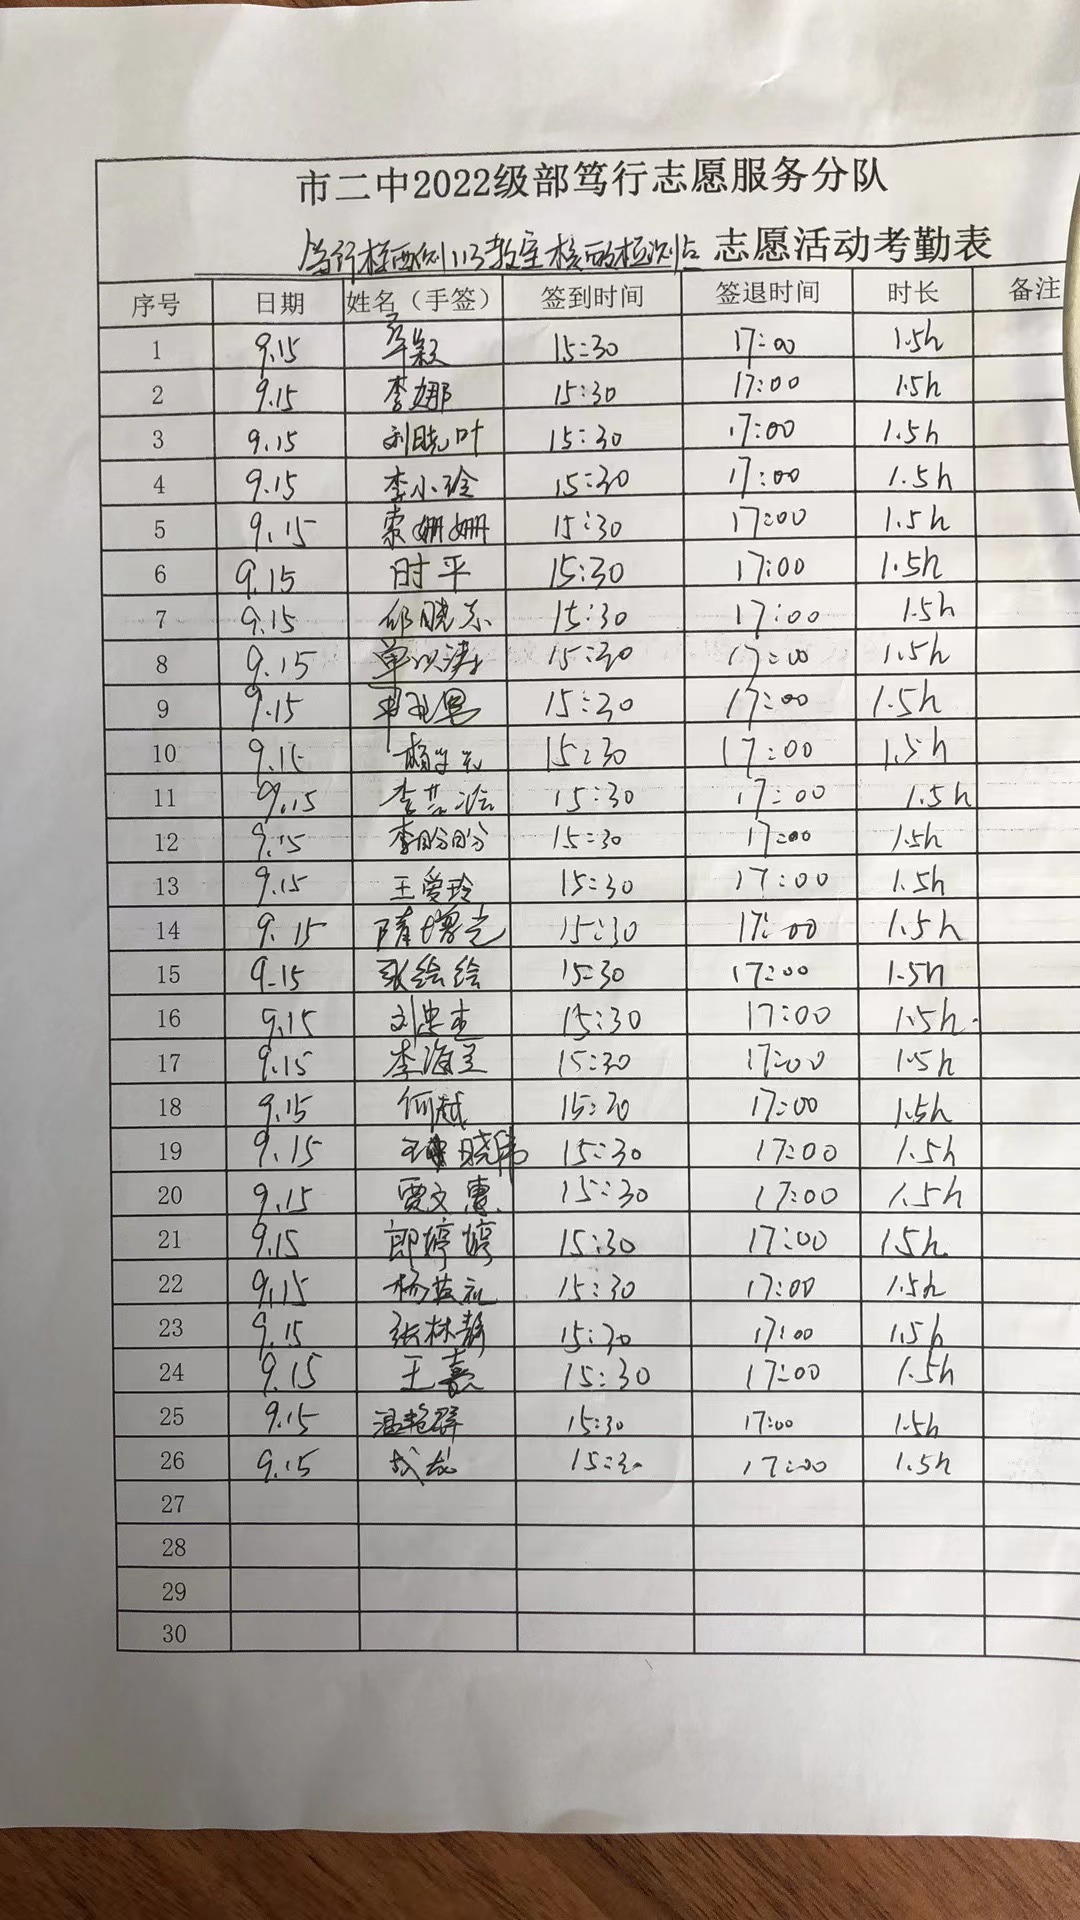 市二中2022级部笃行志愿服务分队
笃行楼西侧113教室核酸检测点 志愿活动考勤表
序号 日期 姓名（手签） 签到时间 签退时间 时长 备注
1 9.15 15:30 17:00 1.5h
2 9.15 李娜 15:30 17:00 1.5h
3 9.15 刘晓叶 15:30 17:00 1.5h
4 9.15 李小玲 15:30 17:00 1.5h
5 9.15 索姗姗 15:30 17:00 1.5h
6 9.15 时平 15:30 17:00 1.5h
7 9.15 邱晓东 15:30 17:00 1.5h
8 9.15 15:30 17:00 1.5h
9 9.15 15:30 17:00 1.5h
10 9.15 15:30 17:00 1.5h
11 9.15 15:30 17:00 1.5h
12 9.15 李盼盼 15:30 17:00 1.5h
13 9.15 王爱玲 15:30 17:00 1.5h
14 9.15 隋增光 15:30 17:00 1.5h
15 9.15 张绘绘 15:30 17:00 1.5h
16 9.15 15:30 17:00 1.5h
17 9.15 李海兰 15:30 17:00 1.5h
18 9.15 何越 15:30 17:00 1.5h
19 9.15 晓伟 15:30 17:00 1.5h
20 9.15 贾文惠 15:30 17:00 1.5h
21 9.15 郎婷婷 15:30 17:00 1.5h
22 9.15 15:30 17:00 1.5h
23 9.15 张林静 15:30 17:00 1.5h
24 9.15 王嘉 15:30 17:00 1.5h
25 9.15 温艳群 15:30 17:00 1.5h
26 9.15 成龙 15:30 17:00 1.5h
27
28
29
30